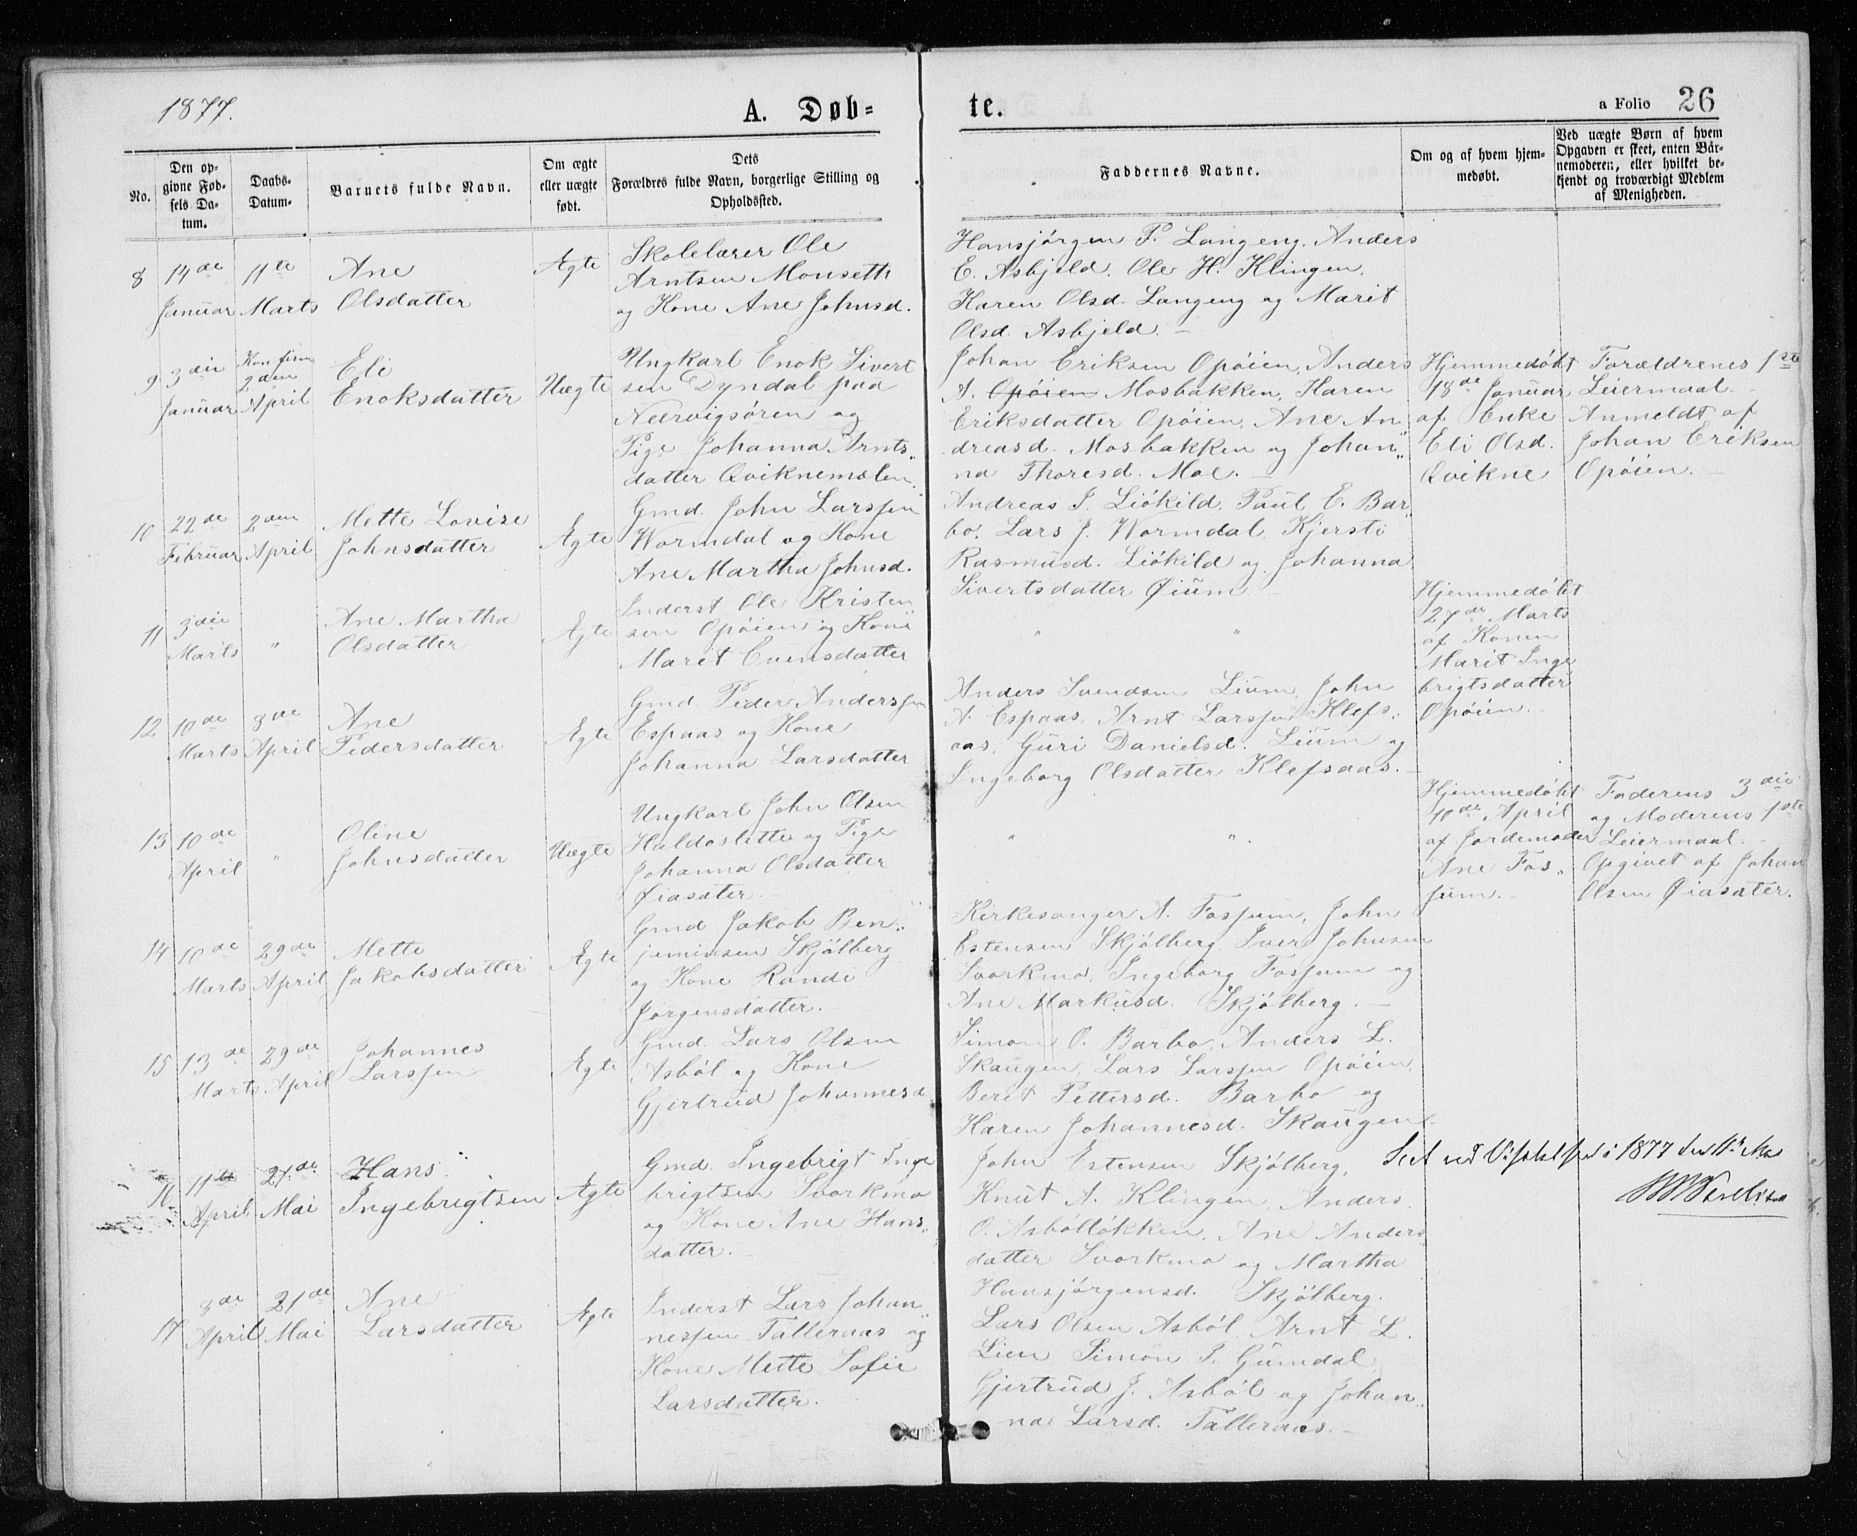 1877.
A. Døb-
te.
a Folio 26
No.
Den op-
givne Fød-
sels Da-
tum.
Daabs-
Datum.
Barnets fulde Navn.
Om ægte
eller uægte
født.
Dets
Forældres fulde Navn, borgerlige Stilling og
Opholdssted.
Faddernes Navne.
Om og af hvem hjem-
medøbt.
Ved uægte Børn af hvem
Opgaven er skeet, enten Bar-
nemoderen, eller hvilket be-
kjendt og troværdigt Medlem
af Menigheden.
8
14de
Januar
11te
Marts
Ane
Olsdatter
Ægte
Skolelærer Ole
Arntsen Monseth
og Kone Ane Johnsd.
Hansjörgen P. Langeng, Anders
E. Asbjeld, Ole H. Klingen,
Karen Olsd. Langeng og Marit
Olsd. Asbjeld. —
9
3die
Januar
Konfirm
2den
April
Eli
Enoksdatter
Uægte
Ungkarl Enok Sivert
sen Dyndal paa
Nervigsören og
Pige Johanna Arnts„
datter Qviknemælen.
Johan Eriksen Opöien, Anders
A. Opöien Mosbakken, Karen
Eriksdatter Opöien, Ane An„
dreasd. Mosbakken og Johan„
na Thoresd. Moe. —
Hjemmedöbt
18de Januar
af Enke
Eli Olsd.
Qvikne
Forældrenes 1ste
Leiermaal.
Anmeldt af
Johan Eriksen
Opöien. —
10
22de
Februar
2den
April
Mette Lovise
Johnsdatter
Ægte
Gmd. John Larssen
Wormdal og Kone
Ane Martha Johnsd.
Andreas J. Liökild, Paul E. Bar„
bo, Lars J. Wormdal, Kjersti
Rasmusd. Liökild og Johanna
Sivertsdatter Øium. —
11
3die
Marts
"
Ane Martha
Olsdatter
Ægte
Inderst Ole Kristen
sen Opöien og Kone
Maret Evensdatter
" "
Hjemmedöbt
27de Marts
af Konen
Marit Inge
brigtsdatter
Opöien. —
12
10de
Marts
3de
April
Ane
Pedersdatter
Ægte
Gmd. Peder Anderssen
Espaas og Kone
Johanna Larsdatter
Anders Svendsen Lium, John
A. Espaas, Arnt Larssen Klefs„
aas, Guri Danielsd. Lium og
Ingeborg Olsdatter Klefsaas. —
13
10de
April
"
Oline
Johnsdatter
Uægte
Ungkarl John Olsen
Haldoslette og Pige
Johanna Olsdatter
Øiasæter. —
" "
Hjemmedöbt
10de April
af Jordemoder
Ane Fos„
sum. —
Faderens 3die
og Moderens 1ste
Leiermaal. —
Opgivet af Johan
Olsen Øiasæter.
14
10de
Marts
29de
April
Mette
Jakobsdatter
Ægte
Gmd Jakob Ben„
jaminsen Skjölberg
og Kone Randi
Jörgensdatter. —
Kirkesanger A. Fossum, John
Estensen Skjölberg, Iver Johnsen
Svorkmo, Ingeborg Fossum og
Ane Markusd. Skjölberg. —
15
13de
Marts
29de
April
Johannes
Larssen
Ægte
Gmd. Lars Olsen
Asböl og Kone
Gjertrud Johannesd
Simon O. Barbo, Anders L.
Skaugen, Lars Larssen Opöien,
Berit Pettersd. Barbo og
Karen Johannesd. Skaugen.
16
11te
April
21de
Mai
Hans
Ingebrigtsen
Ægte
Gmd. Ingebrigt Inge
brigtsen Svorkmo
og Kone Ane Hans„
datter. —
John Estensen Skjölberg,
Knut A. Klingen, Anders
O. Asböllökken, Ane Anders
datter Svorkmo og Martha
Hansjörgensd. Skjölberg.
Seet ved i 1877
17
8de
April
21de
Mai
Ane
Larsdatter
Ægte
Inderst Lars Johan„
nessen Talleraas og
Kone Mette Sofie
Larsdatter.
Lars Olsen Asböl, Arnt L.
Lien Simon S. Gumdal
Gjertrud J. Asböl og Johan„
na Larsd. Talleraas. —